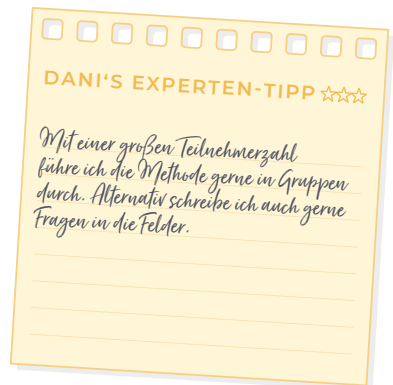 DANI'S EXPERTEN-TIPP
Mit einer großen Teilnehmerzahl
führe ich die Methode gerne in Gruppen
durch. Alternativ schreibe ich auch gerne
Fragen in die Felder.